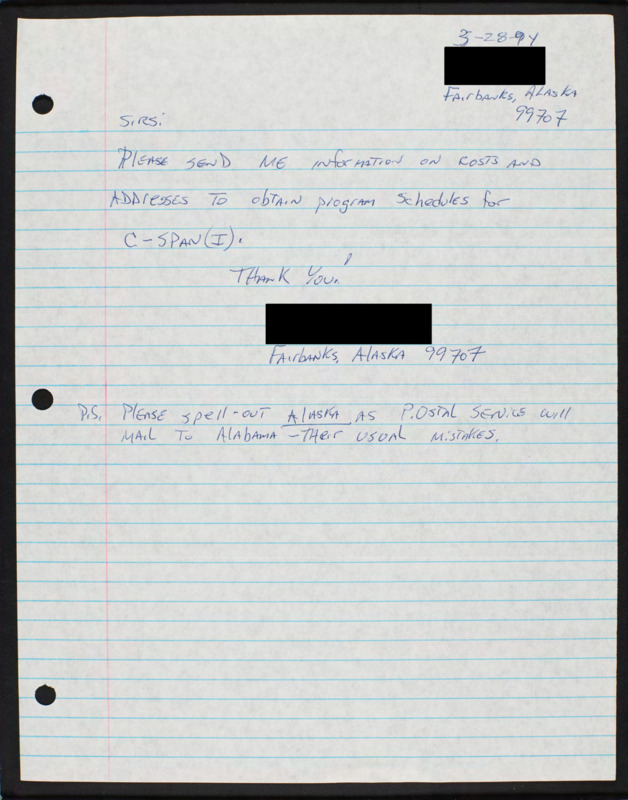 3-28-94
Fairbanks, Alaska
99707
Sirs:
Please send me information on costs and
addresses to obtain program schedules for
C-SPAN(I).
Thank you!
Fairbanks, Alaska 99707
P.S. Please spell-out Alaska as P.Ostal Service will
mail to Alabama - their usual mistakes.